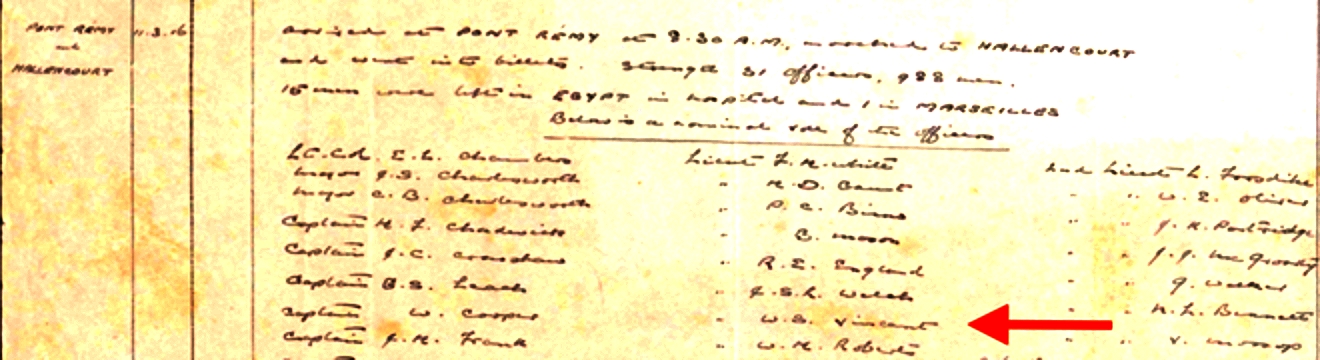 PONT REMY 11.3.16 arrived at PONT REMY at 8.30 A.M., marched to HALLENCOURT
and and went into billets. Strength 31 officers, 988 men.
HALLENCOURT 15 men were left in EGYPT in hospital and 1 in MARSEILLES
Below is a nominal role of the officers
Lt. Col. E.L. Chambers Lieut F.H. White 2nd Lieut L. Forsdike
Major J.S. Charlesworth " H.D. Gaunt " " W.E. Oliver
Major C.B. Charlesworth " P.C. Binns " " J.R. Partridge
Captain H.F. Chadwick " C. Moxon " " J.J. McGrorty
Captain J.C. Crawshaw " R.E. England " " G. Walker
Captain B.S. Leach " J.S.L. Welch " " H.L. Bennett
Captain W. Cooper " W.S. Vincent " " V. Mossop
Captain J.H. Frank " W.H. Roberts